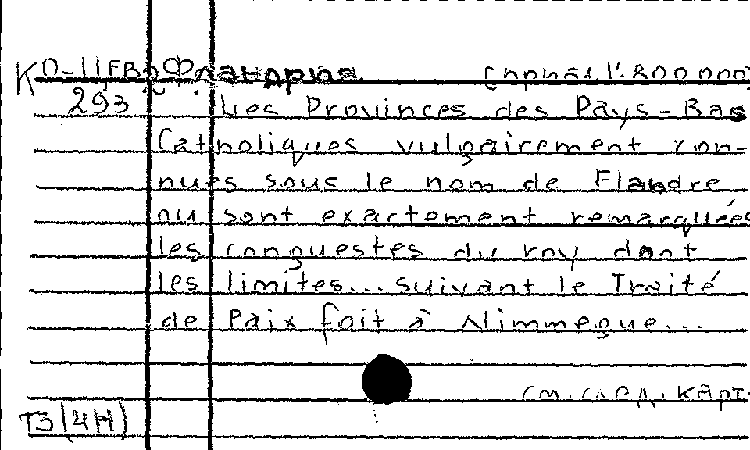 Фландрия 1:800 000]
293 Les Provinces des Pays-Bas
Catholiques vulgairement con-
nues sous le nom de Flandre
ou sont exactement remarquées
les conquestes du roy dont
les limites... suivant le Traité
de Paix fait à Nimmegue...
см. след. карт
T3(4H)